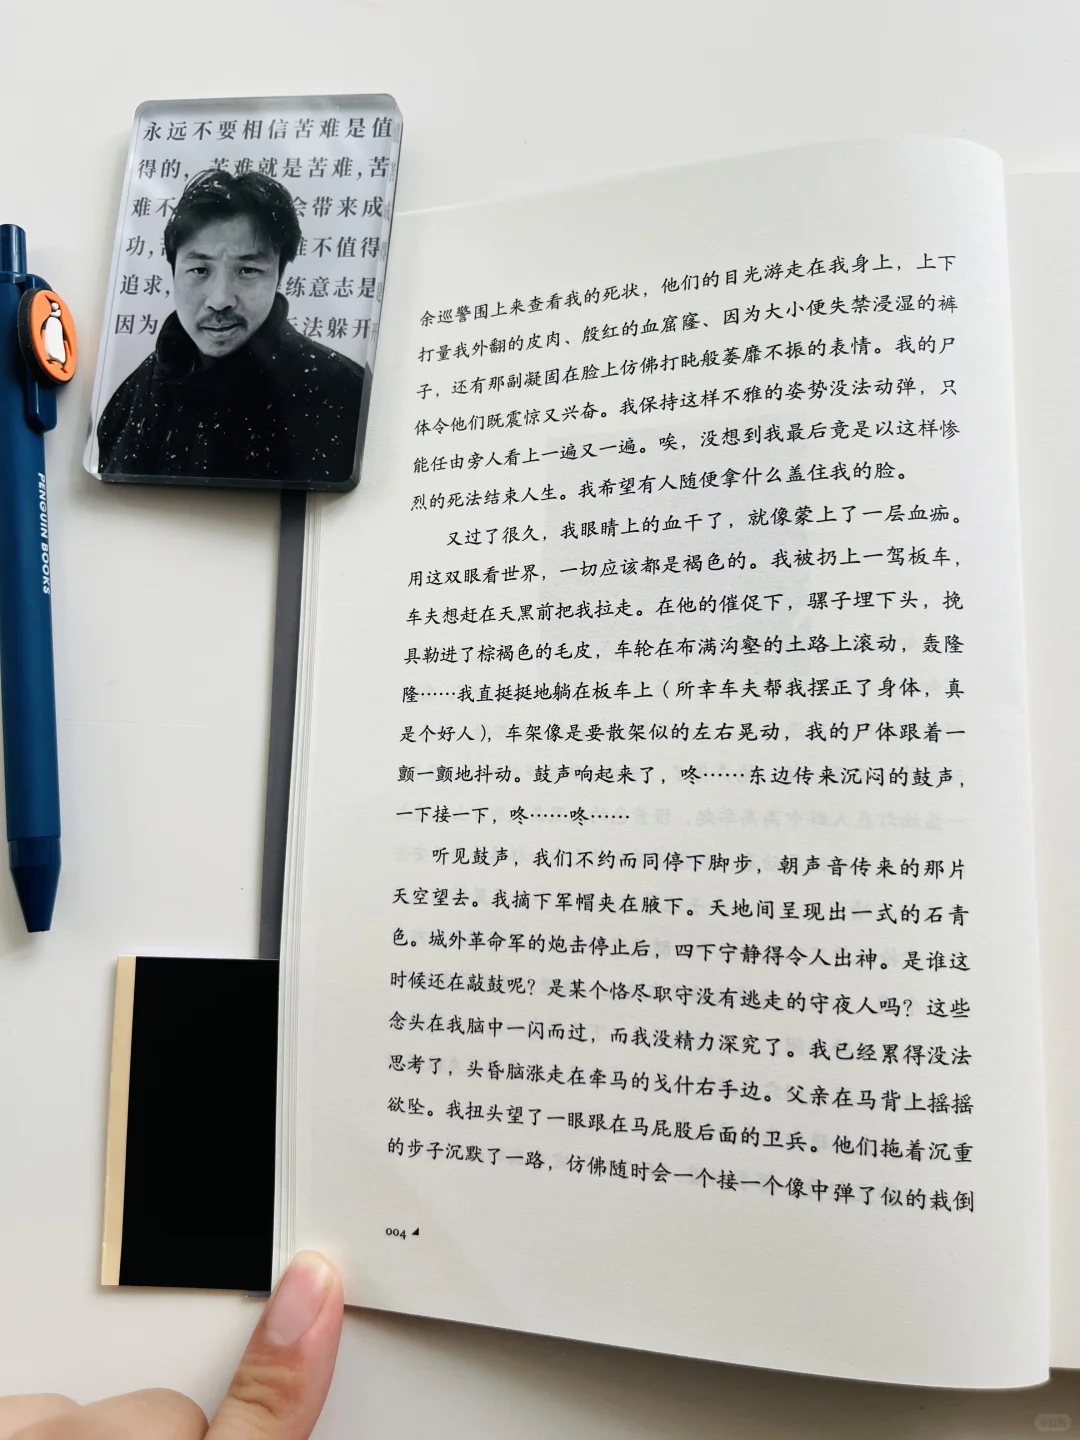 永远不要相信苦难是值
得的，苦难就是苦难，苦
难不 会带来成
功， 难不值得
追求， 练意志是
因为 法躲开
PENGUIN BOOKS
余巡警围上来查看我的死状，他们的目光游走在我身上，上下
打量我外翻的皮肉、殷红的血窟窿、因为大小便失禁浸湿的裤
子，还有那副凝固在脸上仿佛打盹般萎靡不振的表情。我的尸
体令他们既震惊又兴奋。我保持这样不雅的姿势没法动弹，只
能任由旁人看上一遍又一遍。唉，没想到我最后竟是以这样惨
烈的死法结束人生。我希望有人随便拿什么盖住我的脸。
又过了很久，我眼睛上的血干了，就像蒙上了一层血痂。
用这双眼看世界，一切应该都是褐色的。我被扔上一驾板车，
车夫想赶在天黑前把我拉走。在他的催促下，骡子埋下头，挽
具勒进了棕褐色的毛皮，车轮在布满沟壑的土路上滚动，轰隆
隆……我直挺挺地躺在板车上（所幸车夫帮我摆正了身体，真
是个好人），车架像是要散架似的左右晃动，我的尸体跟着一
颤一颤地抖动。鼓声响起来了，咚……东边传来沉闷的鼓声，
一下接一下，咚……咚……
听见鼓声，我们不约而同停下脚步，朝声音传来的那片
天空望去。我摘下军帽夹在腋下。天地间呈现出一式的石青
色。城外革命军的炮击停止后，四下宁静得令人出神。是谁这
时候还在敲鼓呢？是某个恪尽职守没有逃走的守夜人吗？这些
念头在我脑中一闪而过，而我没精力深究了。我已经累得没法
思考了，头昏脑涨走在牵马的戈什右手边。父亲在马背上摇摇
欲坠。我扭头望了一眼跟在马屁股后面的卫兵。他们拖着沉重
的步子沉默了一路，仿佛随时会一个接一个像中弹了似的栽倒
004
小红书